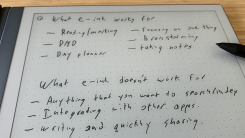 What e-ink works for
- Reading/marking
- PMD
- Day planner
- Focusing on one thing
- Brainstorming
- taking notes
What e-ink doesn't work for
- Anything that you want to search/index
- Integrating with other apps.
- writing and quickly sharing.